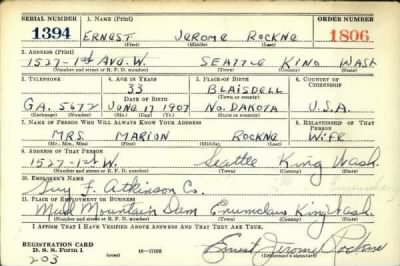 SERIAL NUMBER 1. NAME (Print) ORDER NUMBER
1394 ERNEST JEROME ROCKNE 1806
(First) (Middle) (Last)
2. ADDRESS (Print)
1527-1st AVE. W. SEATTLE KING WASH
(Number and street or R. F. D. number) (Town) (County) (State)
3. TELEPHONE 4. AGE IN YEARS 5. PLACE OF BIRTH 6. COUNTRY OF CITIZENSHIP
33 BLAISDELL
DATE OF BIRTH (Town or county)
GA. 5672 JUNE 17 1907 NO. DAKOTA U.S.A.
(Exchange) (Number) (Mo.) (Day) (Yr.) (State or country)
7. NAME OF PERSON WHO WILL ALWAYS KNOW YOUR ADDRESS 8. RELATIONSHIP OF THAT PERSON
MRS. MARION ROCKNE WIFE
(Mr., Mrs., Miss) (First) (Middle) (Last)
9. ADDRESS OF THAT PERSON
1527-1st W. Seattle King Wash.
(Number and street or R. F. D. number) (Town) (County) (State)
10. EMPLOYER'S NAME
Guy F. Atkinson Co.
11. PLACE OF EMPLOYMENT OR BUSINESS
Mud Mountain Dam Enumclaw King Wash.
(Number and street or R. F. D. number) (Town) (County) (State)
I AFFIRM THAT I HAVE VERIFIED ABOVE ANSWERS AND THAT THEY ARE TRUE.
REGISTRATION CARD
D. S. S. FORM 1 Ernest Jerome Rockne
(Registrant's signature)
203